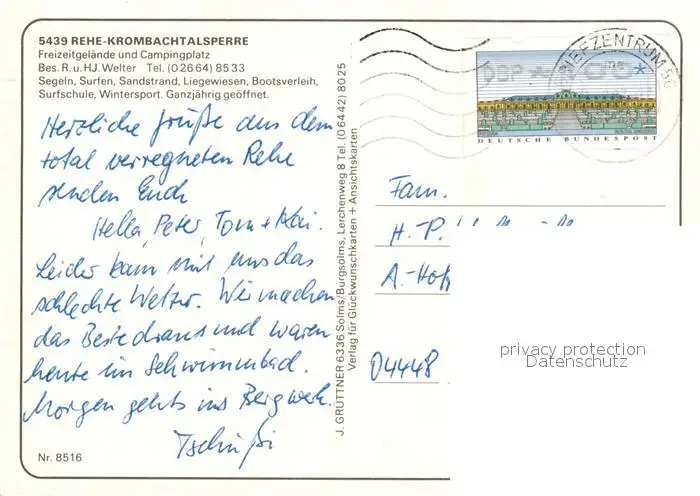 5439 REHE-KROMBACHTALSPERRE
Freizeitgelände und Campingplatz
Bes. R. u. HJ. Welter Tel. (02664) 8533
Segeln, Surfen, Sandstrand, Liegewiesen, Bootsverleih,
Surfschule, Wintersport. Ganzjährig geöffnet.
Herzliche Grüße aus dem
total verregneten Rehe
senden Euch
Hella, Peter, Tom + Kai.
Leider kam mit uns das
schlechte Wetter. Wir machen
das Beste draus und waren
heute im Schwimmbad.
Morgen gehts ins Bergwerk.
Tschüßi
Nr. 8516
J. GRÜTTNER 6336 Solms/Burgsolms, Lerchenweg 8 Tel. (06442) 8025
Verlag für Glückwunschkarten + Ansichtskarten
BRIEFZENTRUM 56
DEUTSCHE BUNDESPOST
Fam.
H.-P.
A.-Hof
04448
privacy protection
Datenschutz